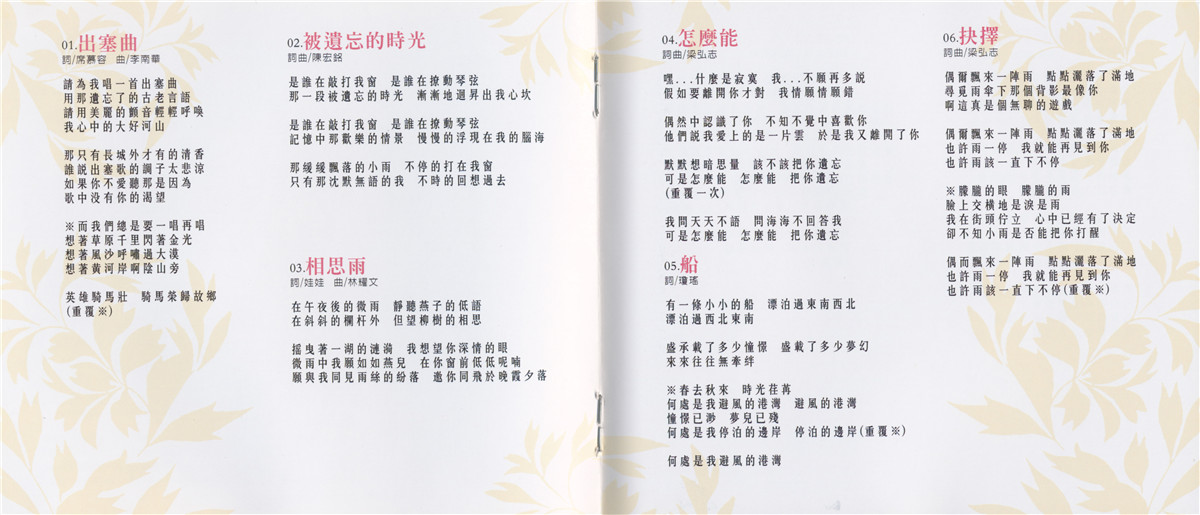 01.出塞曲
詞/席慕容　曲/李南華
請為我唱一首出塞曲
用那遺忘了的古老言語
請用美麗的顫音輕輕呼喚
我心中的大好河山
那只有長城外才有的清香
誰說出塞歌的調子太悲涼
如果你不愛聽那是因為
歌中沒有你的渴望
※而我們總是要一唱再唱
想著草原千里閃著金光
想著風沙呼嘯過大漠
想著黃河岸啊陰山旁
英雄騎馬壯　騎馬榮歸故鄉
(重覆※)
02.被遺忘的時光
詞曲/陳宏銘
是誰在敲打我窗　是誰在撩動琴弦
那一段被遺忘的時光　漸漸地迴昇出我心坎
是誰在敲打我窗　是誰在撩動琴弦
記憶中那歡樂的情景　慢慢的浮現在我的腦海
那緩緩飄落的小雨　不停的打在我窗
只有那沈默無語的我　不時的回想過去
03.相思雨
詞/娃娃　曲/林耀文
在午夜後的微雨　靜聽燕子的低語
在斜斜的欄杆外　但望柳樹的相思
搖曳著一湖的漣漪　我想望你深情的眼
微雨中我願如如燕兒　在你窗前低低呢喃
願與我同見雨絲的紛落　邀你同飛於晚霞夕落
04.怎麼能
詞曲/梁弘志
嘿...什麼是寂寞　我...不願再多説
假如要離開你才對　我情願情願錯
偶然中認識了你　不知不覺中喜歡你
他們説我愛上的是一片雲　於是我又離開了你
默默想暗思量　該不該把你遺忘
可是怎麼能　怎麼能　把你遺忘
(重覆一次)
我問天天不語　問海海不回答我
可是怎麼能　怎麼能　把你遺忘
05.船
詞/瓊瑤
有一條小小的船　漂泊過東南西北
漂泊過西北東南
盛承載了多少憧憬　盛載了多少夢幻
來來往往無牽絆
※春去秋來　時光荏苒
何處是我避風的港灣　避風的港灣
憧憬已渺　夢兒已殘
何處是我停泊的邊岸　停泊的邊岸(重覆※)
何處是我避風的港灣
06.抉擇
詞曲/梁弘志
偶爾飄來一陣雨　點點灑落了滿地
尋覓雨傘下那個背影最像你
啊這真是個無聊的遊戲
偶爾飄來一陣雨　點點灑落了滿地
也許雨一停　我就能再見到你
也許雨該一直下不停
※朦朧的眼　朦朧的雨
臉上交橫地是淚是雨
我在街頭佇立　心中已經有了決定
卻不知小雨是否能把你打醒
偶而飄來一陣雨　點點灑落了滿地
也許雨一停　我就能再見到你
也許雨該一直下不停(重覆※)